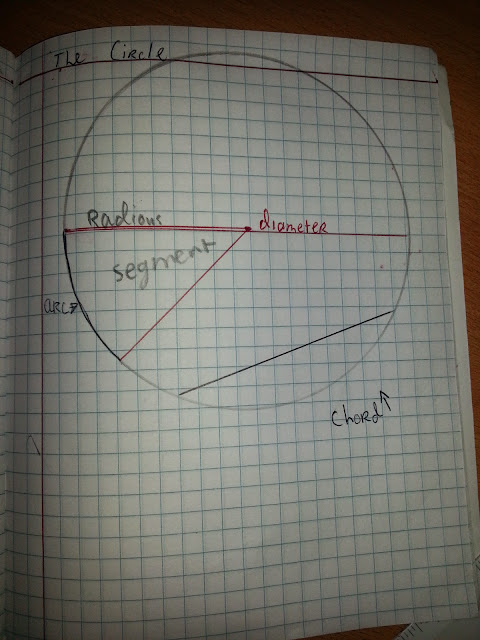 The Circle
Radious
diameter
segment
arc
Chord